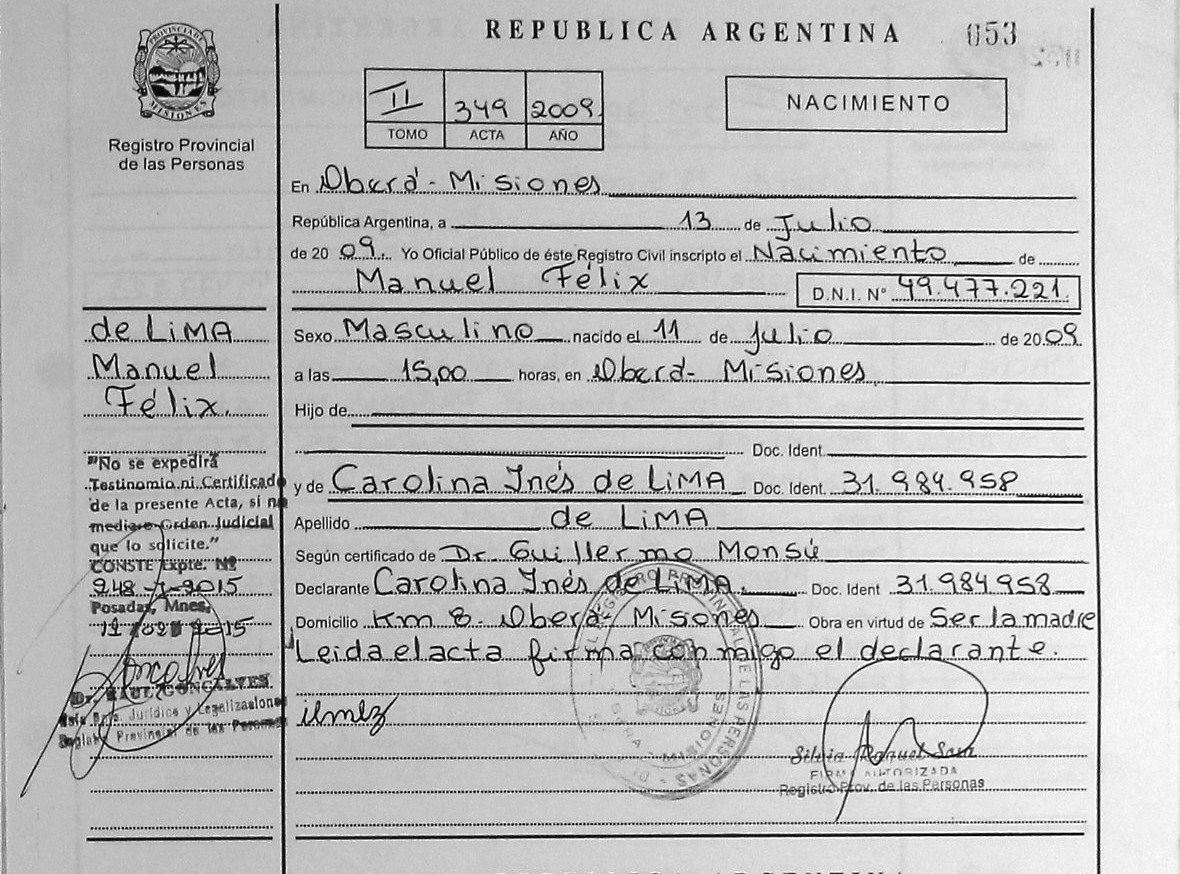 REPUBLICA ARGENTINA 053
PROVINCIA DE MISIONES
Registro Provincial
de las Personas
II 349 2009
TOMO ACTA AÑO
NACIMIENTO
En Oberá - Misiones
República Argentina, a 13 de Julio
de 20 09. Yo Oficial Público de éste Registro Civil inscripto el Nacimiento de
Manuel Félix D.N.I. Nº 49.477.221.
Sexo Masculino nacido el 11 de Julio de 20 09
a las 15,00 horas, en Oberá - Misiones
Hijo de
Doc. Ident.
y de Carolina Inés de LiMA Doc. Ident. 31.984.958
Apellido de LiMA
Según certificado de Dr. Guillermo Monsú
Declarante Carolina Inés de LiMA Doc. Ident 31.984.958
Domicilio Km 8 - Oberá - Misiones Obra en virtud de Ser la madre
Leida el acta firma conmigo el declarante.
FIRMA AUTORIZADA
Registro Prov. de las Personas
REGISTRO PROVINCIAL DE LAS PERSONAS
MISIONES
de LiMA
Manuel
Félix.
"No se expedirá
Testimonio ni Certificado
de la presente Acta, si no
mediare Orden Judicial
que lo solicite."
CONSTE Expte. Nº
2015
Posadas, Mnes.
2015
Dr. RAUL GONCALVES
Jurídica y Legalizaciones
Registro Provincial de las Personas
REPUBLICA ARGENTINA